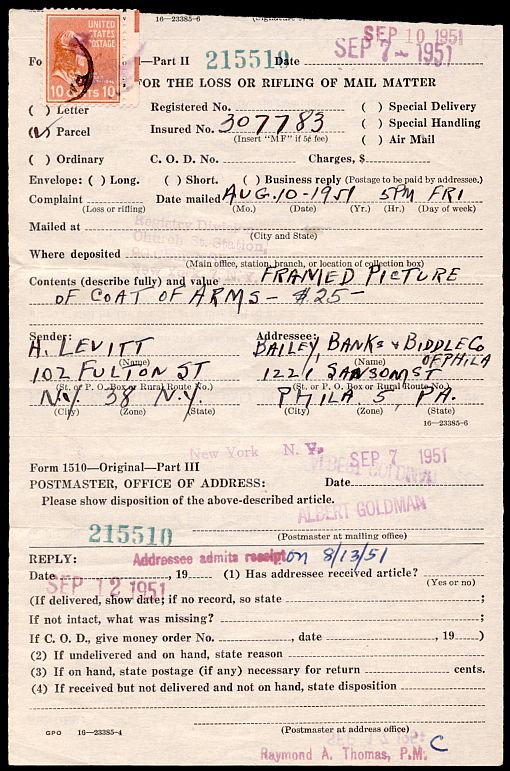 16—23385-6
SEP 10 1951
SEP 7 - 1951
UNITED STATES POSTAGE
10 CENTS 10
Fo —Part II 215510 Date
FOR THE LOSS OR RIFLING OF MAIL MATTER
( ) Letter Registered No. ( ) Special Delivery
(✓) Parcel Insured No. 307783 ( ) Special Handling
(Insert "MF" if 5¢ fee) ( ) Air Mail
( ) Ordinary C. O. D. No. Charges, $
Envelope: ( ) Long. ( ) Short. ( ) Business reply (Postage to be paid by addressee.)
Complaint Date mailed AUG. 10 - 1951 5PM FRI
(Loss or rifling) (Mo.) (Date) (Yr.) (Hr.) (Day of week)
Registry Division
Mailed at
Church St. Station,
(City and State)
Where deposited
(Main office, station, branch, or location of collection box)
New York
Contents (describe fully) and value FRAMED PICTURE
OF COAT OF ARMS - $25-
Sender: Addressee:
H. LEVITT BAILEY BANKS & BIDDLE CO
(Name) (Name) OF PHILA
102 FULTON ST 1221 SANSOM ST
(St. or P. O. Box or Rural Route No.) (St. or P. O. Box or Rural Route No.)
N.Y. 38 N.Y. PHILA 5, PA.
(City) (Zone) (State) (City) (Zone) (State)
16—23385-6
New York N. Y. SEP 7 1951
Form 1510—Original—Part III
POSTMASTER, OFFICE OF ADDRESS: Date
Please show disposition of the above-described article.
ALBERT GOLDMAN
215510 (Postmaster at mailing office)
REPLY: Addressee admits receipt on 8/13/51
Date , 19 (1) Has addressee received article?
SEP 12 1951 (Yes or no)
(If delivered, show date; if no record, so state ;
If not intact, what was missing? ;
If C. O. D., give money order No. , date , 19 )
(2) If undelivered and on hand, state reason
(3) If on hand, state postage (if any) necessary for return cents.
(4) If received but not delivered and not on hand, state disposition
GPO 16—23385-4 (Postmaster at address office)
Raymond A. Thomas, P.M. C